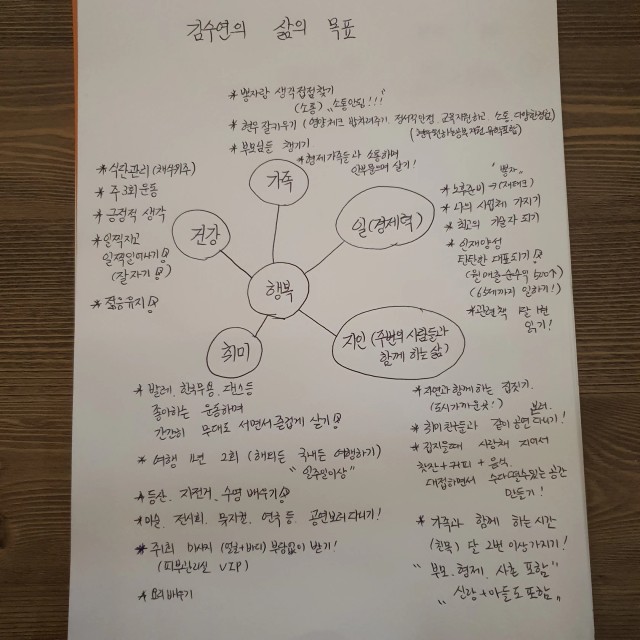 김수연의 삶의 목표
* 뽕자랑 생각접점찾기
(소통) "소통안됨!!!"
* 현우 잘키우기 (영양체크 밥차려주기, 정서적안정, 교육지원하고, 소통, 다양한경험)
* 부모님들 챙기기
* 형제가족들과 소통하며
안부물으며 살기!
가족
* 식단관리 (채식위주)
* 주3회 운동
* 긍정적 생각
* 일찍자고
일찍일어나기!
(잘자기!)
* 젊음유지!
건강
일(경제력)
"뽕자"
* 노후준비 → (재테크)
* 나의 사업체 가지기
* 최고의 기술자 되기
* 인재양성
탄탄한 대표되기!
(월매출순수익 500↑)
(65세까지 일하기!)
* 관련책 1달 1번
읽기!
행복
취미
지인 (주변의 사람들과
함께 하는 삶)
* 발레, 한국무용, 댄스등
좋아하는 운동하며
간간히 무대도 서면서 즐겁게 살기!
* 여행 1년 2회 (해외든 국내든 여행하기)
"일주일이상"
* 등산, 자전거, 수영 배우기!
* 미술, 전시회, 뮤지컬, 연극 등, 공연보러다니기!
* 주1회 마사지 (얼굴+바디) 부담없이 받기!
(피부관리실 VIP)
* 요리배우기
* 자연과 함께하는 집짓기.
(도시가까운곳!)
* 취미친구들과 같이 공연 보러 다니기!
* 집지을때 사랑채 지어서
찻잔+커피+음식.
대접하면서 수다떨수있는 공간
만들기!
* 가족과 함께 하는 시간
(친목) 단 2번이상가지기!
"부모, 형제, 사촌 포함"
"신랑+아들도 포함"